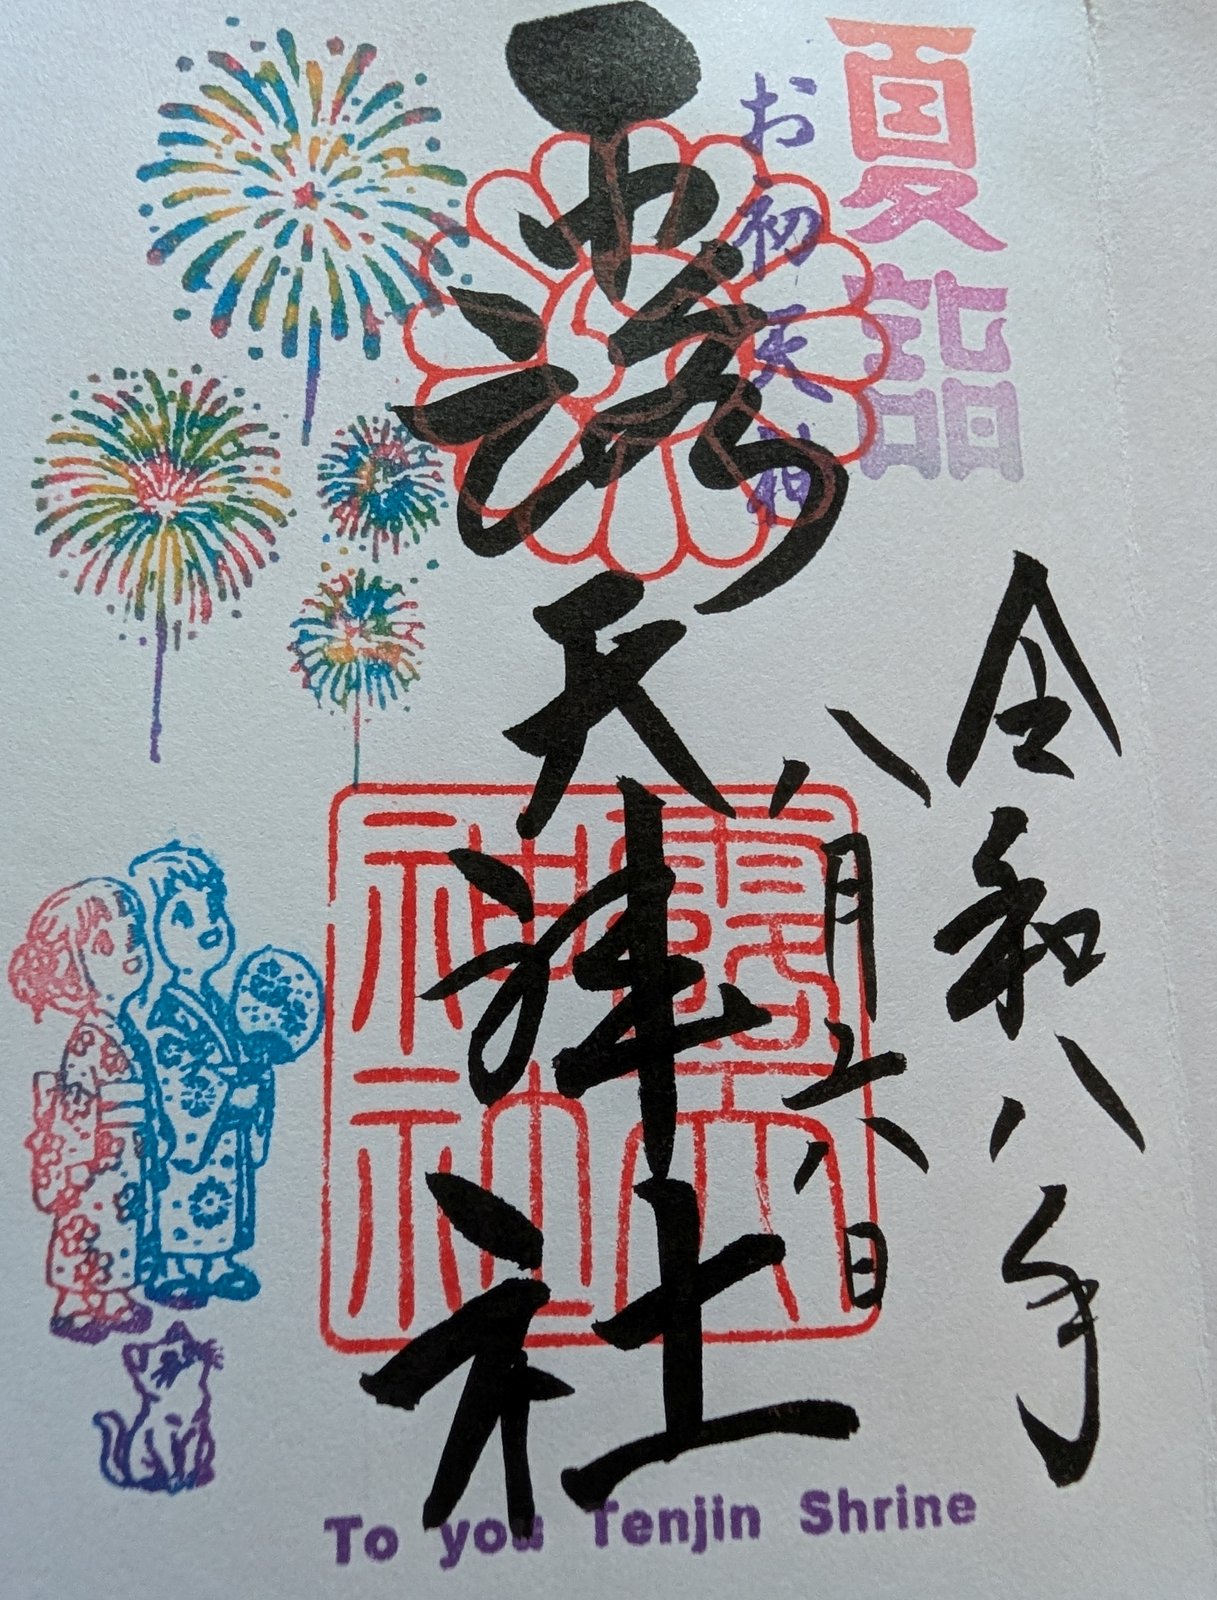 夏詣
お初天神
令和八年
八月六日
露天神社
露天神社
To you Tenjin Shrine